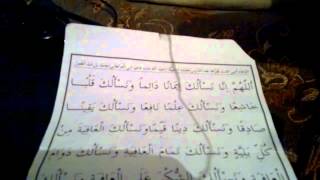 اللهم إنا نسألك إيمانا دائما ونسألك قلبا
خاشعا ونسألك علما نافعا ونسألك يقينا
صادقا ونسألك دينا قيما ونسألك العافية من
كل بلية ونسألك تمام العافية ونسألك دوام
العافية ونسألك الشكر على العافية ونسألك